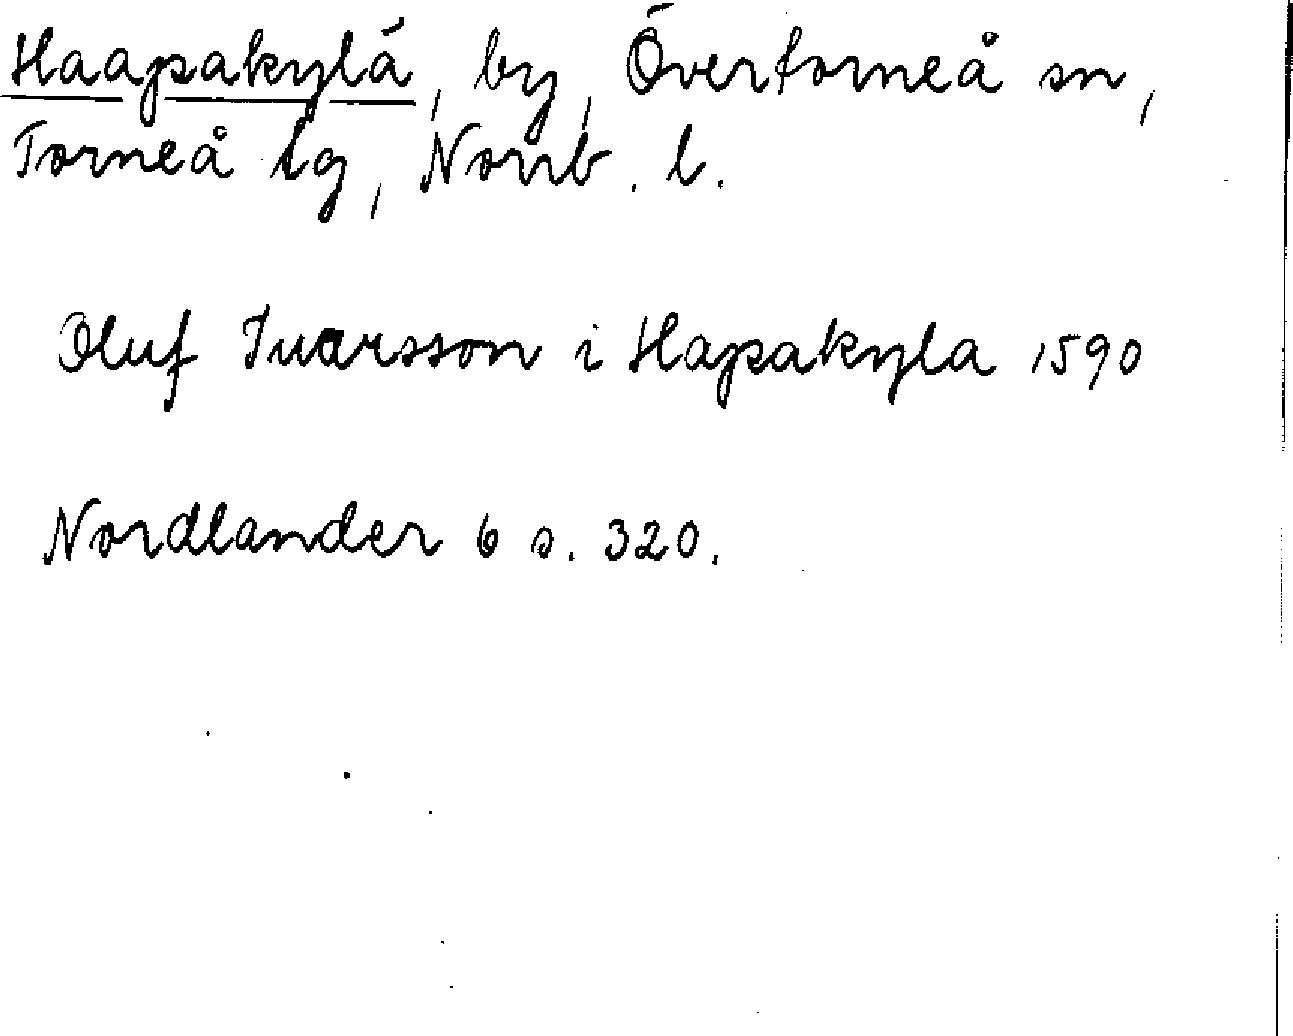 Haapakylä, by, Övertorneå sn,
Torneå lg, Norrb. l.
Oluf Iuarsson i Hapakyla 1590
Nordlander 6 s. 320.